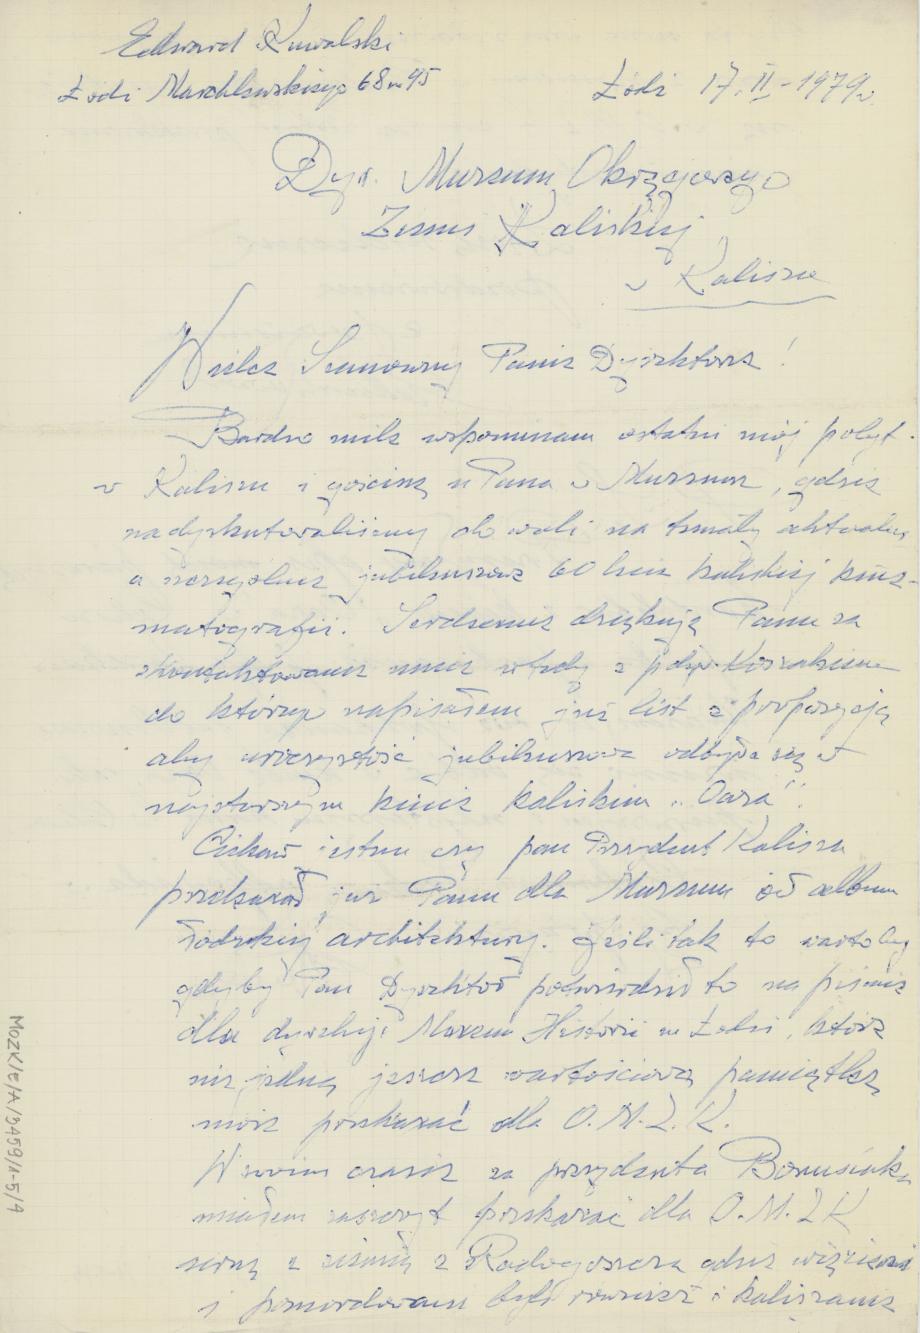 Edward Kowalski
Łódź Marchlewskiego 68 m 45
Łódź 17.II-1979r.
Dyr. Muzeum Okręgowego
Ziemi Kaliskiej
w Kaliszu
Wielce Szanowny Panie Dyrektorze!
Bardzo mile wspominam ostatni mój pobyt
w Kaliszu i gościnę u Pana w Muzeum, gdzie
nadyskutowaliśmy do woli na tematy aktualne,
a szczególnie jubileuszowe 60 lecie kaliskiej kine-
matografii. Serdecznie dziękuję Panu za
skontaktowanie mnie wtedy z
do którego napisałem już list z propozycją
aby uroczystość jubileuszowa odbyła się w
najstarszym kinie kaliskim „Oaza”.
Ciekaw jestem czy pan Prezydent Kalisza
przekazał już Panu dla Muzeum album
łódzkiej architektury. Jeśli tak to warto by
gdyby Pan Dyrektor potwierdził to na piśmie
dla dyrekcji Muzeum Historii m Łodzi, które
nie jedną jeszcze wartościową pamiątkę
może przekazać dla O.M.Z.K.
W swoim czasie za prezydenta Bonusiaka
miałem zaszczyt przekazać dla O.M.Z.K
urnę z ziemią z Radogoszcza gdzie więzieni
i pomordowani byli również i kaliszanie
MOZK/E/A/3459/1-5/1